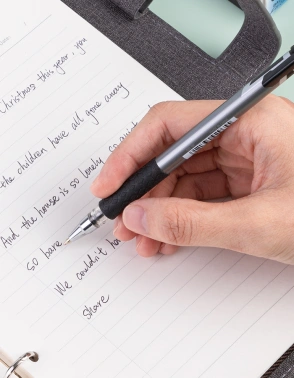 Christmas this year, you
the children have all gone away
And the house is so lonely so quiet
so bare
We couldn't ha
share